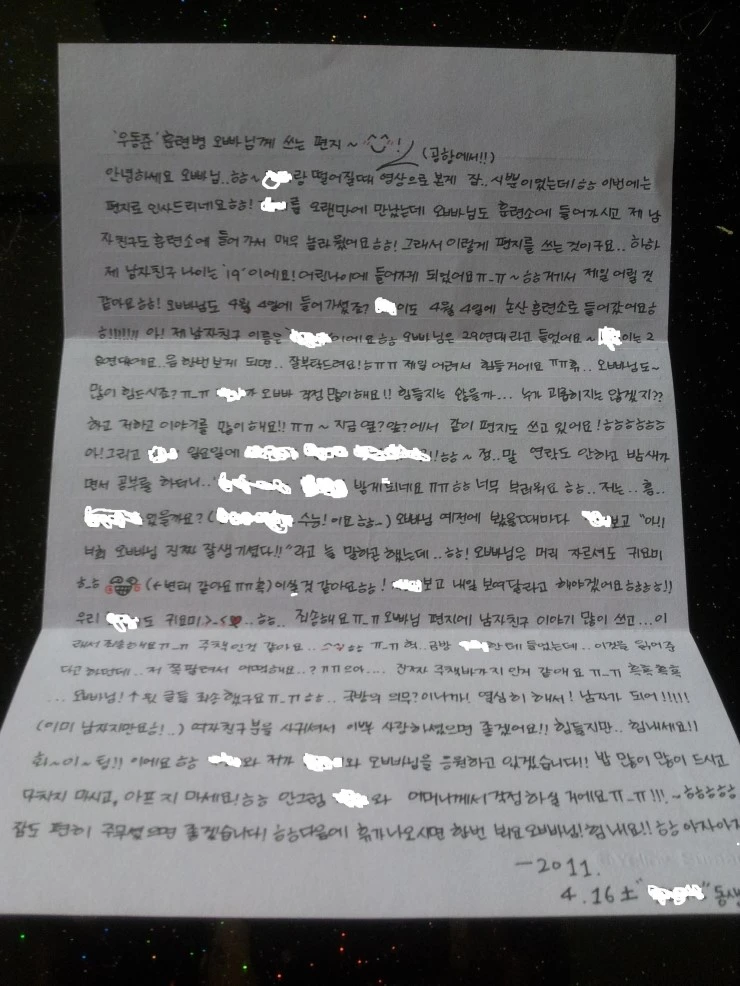 '우동준' 훈련병 오빠님께 쓰는 편지~ !
(공항에서!!)
안녕하세요 오빠님..ㅎㅎ~ 랑 떨어질때 영상으로 본게 잠..시뿐이었는데!ㅎㅎ 이번에는
편지로 인사드리네요ㅎㅎ! 를 오랜만에 만났는데 오빠님도 훈련소에 들어가시고 제 남
자친구도 훈련소에 들어가서 매우 놀라웠어요ㅎㅎ! 그래서 이렇게 편지를 쓰는 것이구요.. 하하
제 남자친구 나이는 '19'이에요! 어린나이에 들어가게 되었어요ㅠ-ㅠ~ ㅎㅎ거기서 제일 어릴 것
같아요ㅎㅎ! 오빠님도 4월 4일에 들어가셨죠? 이도 4월 4일에 논산 훈련소로 들어갔어요ㅎ
ㅎ!!!!!! 아! 제 남자친구 이름은 이에요ㅎㅎ 오빠님은 29연대라고 들었어요~ 이는 2
연대에요..음 한번 보게 되면.. 잘부탁드려요!ㅎㅠㅠ 제일 어려서 힘들거에요 ㅠㅠ흑.. 오빠님도~
많이 힘드시죠? ㅠ_ㅠ 가 오빠 걱정 많이해요!! 힘들지는 않을까... 누가 괴롭히지는 않겠지??
하고 저하고 이야기를 많이 해요!! ㅠㅠ~ 지금 옆?앞?에서 같이 편지도 쓰고 있어요!ㅎㅎㅎㅎㅎㅎ
아!그리고 일요일에 !!ㅎㅎ~ 정..말 연락도 안하고 밤새가
면서 공부를 하더니.. 받게되네요 ㅠㅠㅎㅎ 너무 부러워요 ㅎㅎ..저는..흠..
있을까요? ( 수능!이요ㅎㅎ~) 오빠님 예전에 봤을때마다 보고 "야!!
너희 오빠님 진짜 잘생기셨다!!"라고 늘 말하곤 했는데..ㅎㅎ! 오빠님은 머리 자르셔도 귀요미
ㅎ_ㅎ (←변태 같아요ㅠㅠ흑)이실 것 같아요ㅎㅎ! 보고 내일 보여달라고 해야겠어요ㅎㅎㅎㅎ!!
우리 도 귀요미>_<♥..ㅎㅎ.. 죄송해요ㅠ_ㅠ 오빠님 편지에 남자친구 이야기 많이 쓰고...이
래서 죄송해요ㅠ_ㅠ 주책인것 같아요.. ㅠ_ㅠ 헉..금방 한테 들었는데..이것을 읽어주
다고 하던데.. 저 쪽팔려서 어떡해요..?ㅠㅠ으아.... 진짜 주책바가지 인거 같애요 ㅠ_ㅠ 흑흑흑흑
... 오빠님!↑윗 글들 죄송했구요ㅠ_ㅠㅎㅎ.. 국방의 의무?이니까! 열심히 해서! 남자가 되어!!!!!
(이미 남자지만요ㅎ!..) 여자친구분을 사귀셔서 이쁜 사랑하셨으면 좋겠어요!! 힘들지만.. 힘내세요!!
화~이~팅!! 이에요ㅎㅎ 와 저가 와 오빠님을 응원하고 있겠습니다!! 밥 많이 많이 드시고
다치지 마시고, 아프지 마세요!ㅎㅎ 안그럼 와 어머니께서 걱정하실 거에요ㅠ_ㅠ!!!~ㅎㅎㅎㅎㅎ
잠도 편히 주무셨으면 좋겠습니다! ㅎㅎ다음에 휴가나오시면 한번 뵈요오빠님!힘내요!!ㅎㅎ 아자아자
-2011.
4.16 土 " " 동생